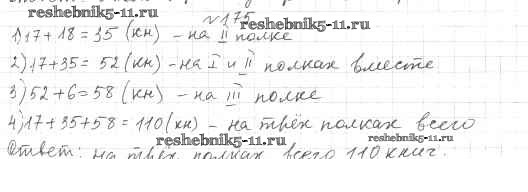 №175
reshebnik5-11.ru
reshebnik5-11.ru
1) 17+18=35 (кн) - на II полке
2) 17+35= 52 (кн) - на I и II полках вместе
3) 52+6=58 (кн) - на III полке
4) 17+35+58= 110 (кн) - на трёх полках всего
reshebnik5-11.ru
reshebnik5-11.ru
Ответ: на трёх полках всего 110 книг.